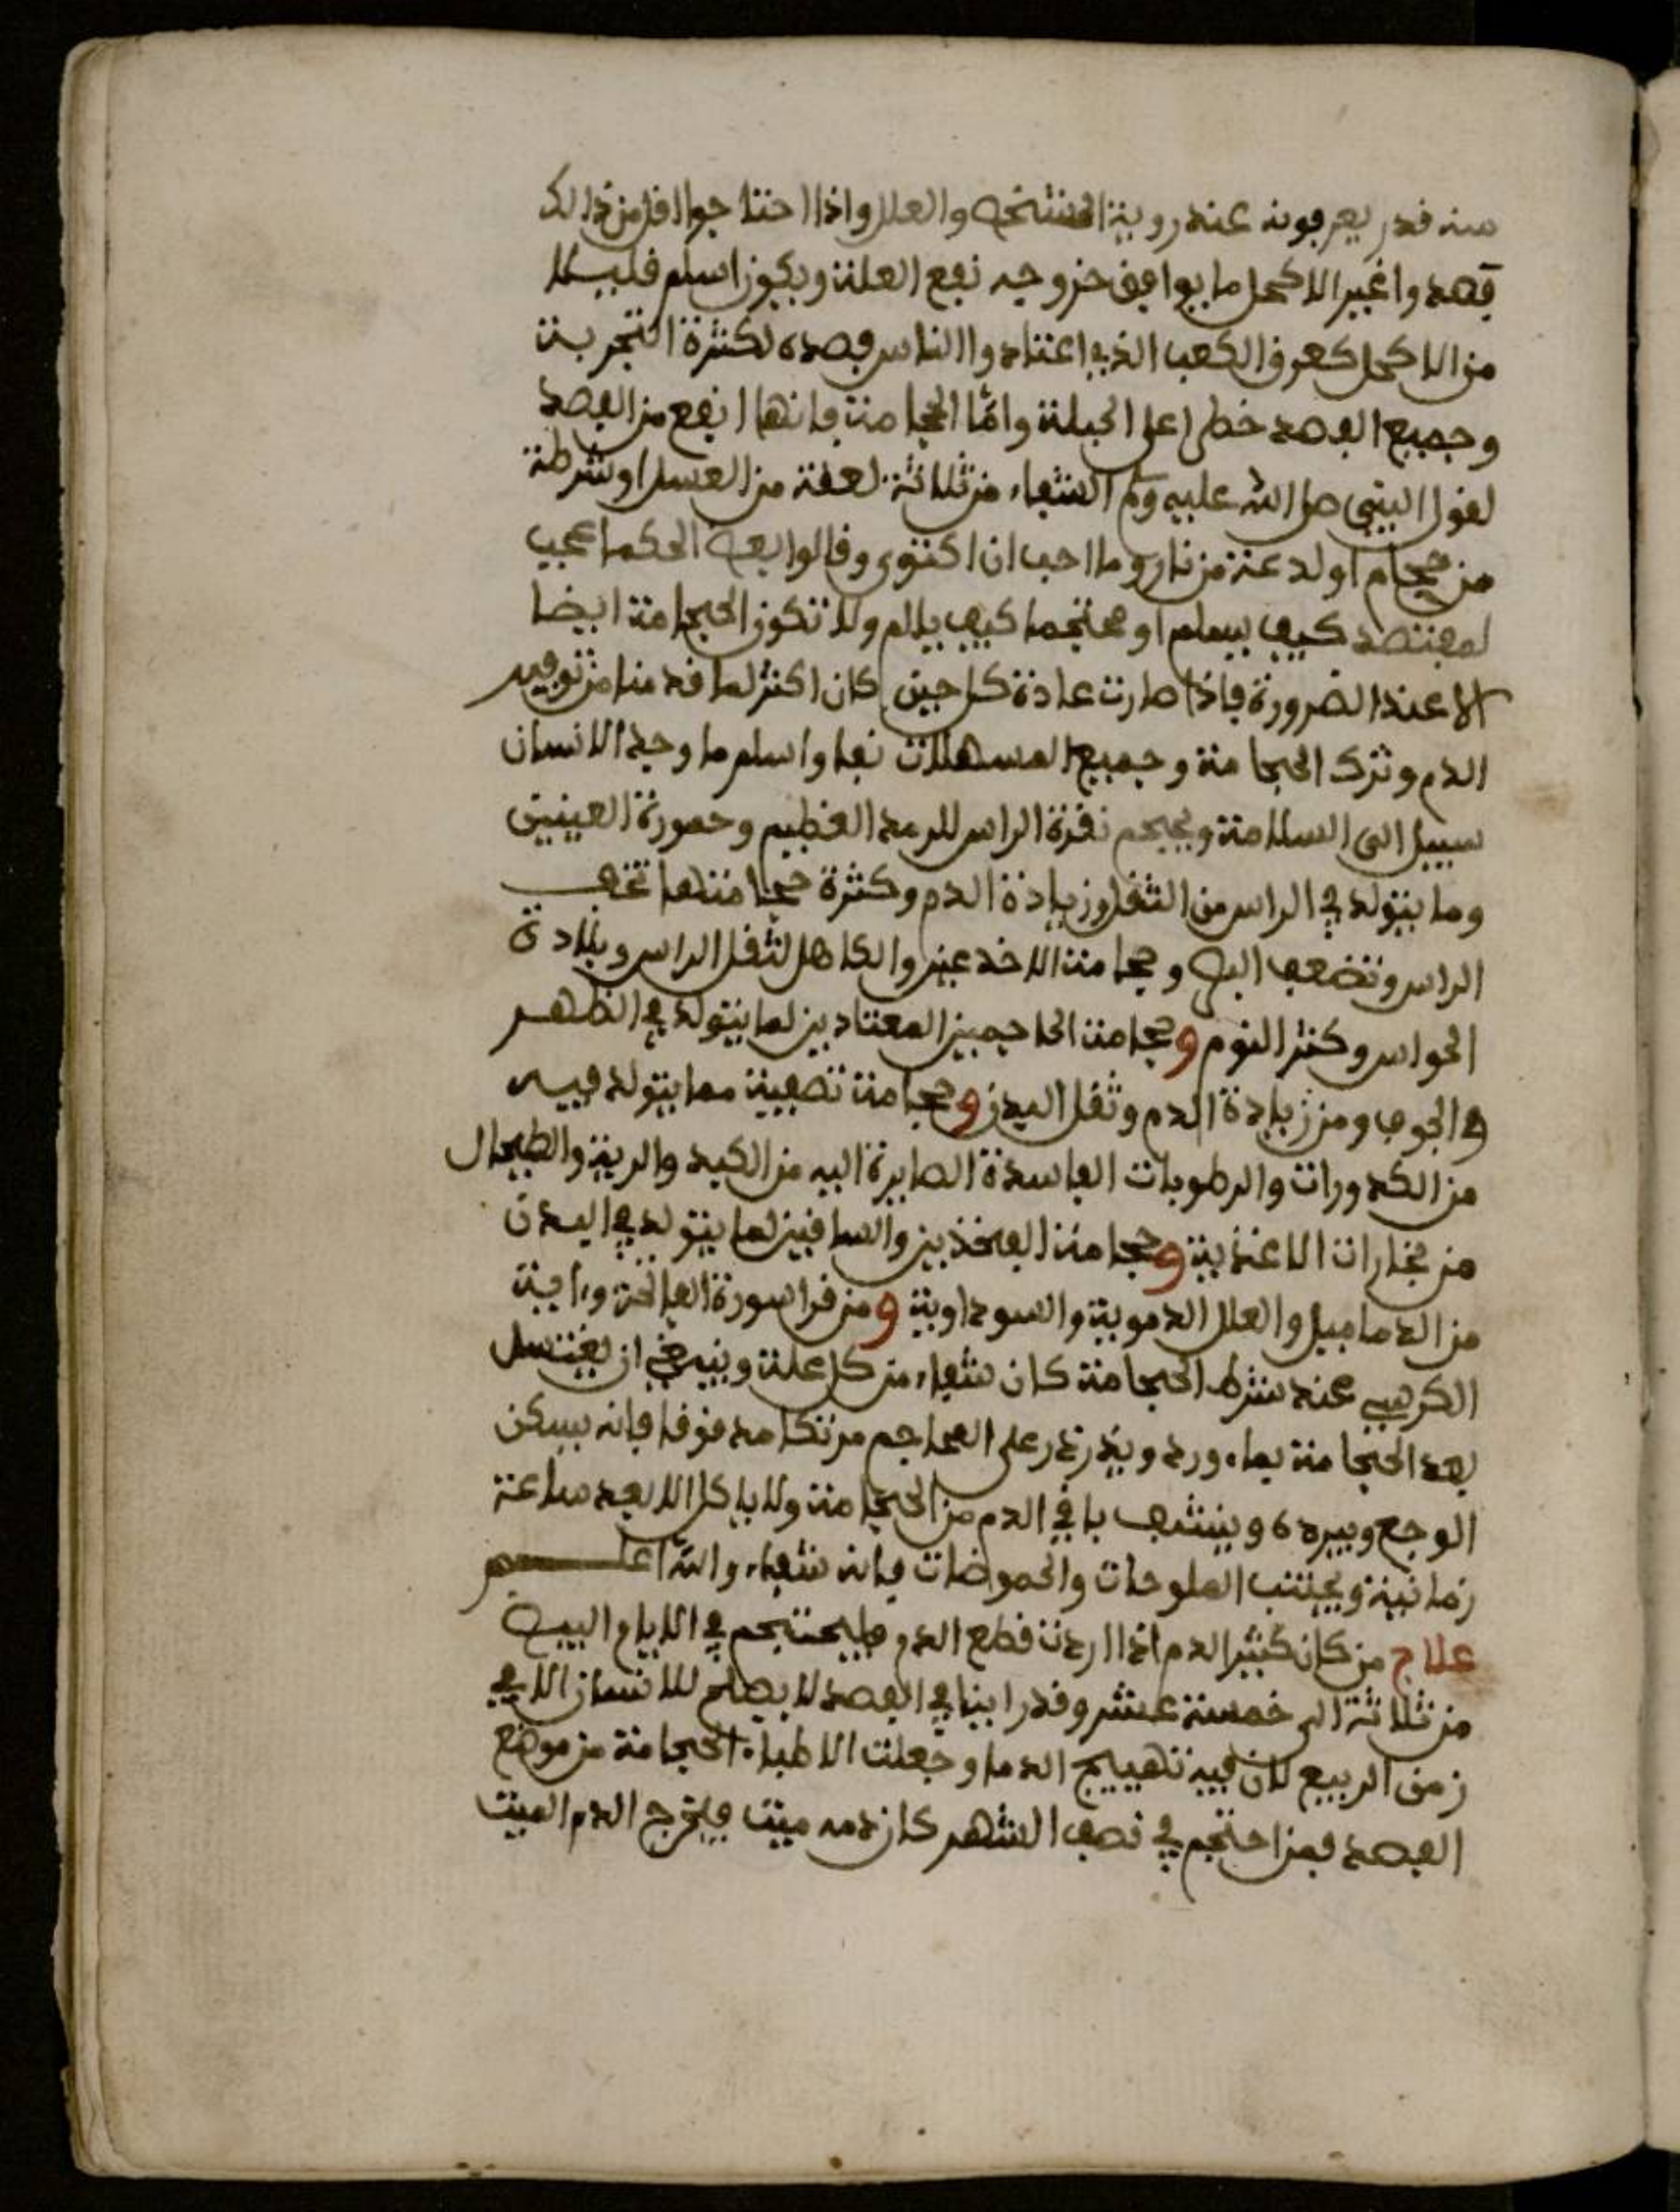 منه قدر يعرفونه عند روية الشخص والعلل واذا احتاجوا اقل من ذالك
فصدوا غير الاكحل ما يوافق خروجه نفع العلة ويكون اسلم قليلا
من الاكحل كعرق الكعب الذي اعتادوا الناس فصده لكثرة التجربة
وجميع الفصد خطر على الجبلة واما الحجامة فانها انفع من الفصد
لقول النبي صلى الله عليه وسلم الشفاء من ثلاثة لعقة من العسل او شرطة
من حجام او لدعة من نار وما احب ان اكتوى وقالوا بعض الحكما عجب
لمفتصد كيف يسلم او محتجما كيف يالم ولا تكون الحجامة ايضا
الا عند الضرورة فاذا صارت عادة كل حين كان اكثر لما قدمنا من توفير
الدم وترك الحجامة وجميع المسهلات نفعا واسلم ما وجد الانسان
سبيل الى السلامة ويحجم نقرة الراس للرمد العظيم وحمورة العينين
وما يتولد في الراس من الثقل وزيادة الدم وكثرة حجامتها تخف
الراس وتضعف البصر وحجامة الاخدعين والكاهل لثقل الراس وبلادة
الحواس وكثر النوم وحجامة الحاجمين المعتادين لما يتولد في الظهر
والجوف ومن زيادة الدم وثقل البدن وحجامة تصفية مما يتولد فيه
من الكدورات والرطوبات الفاسدة الصايرة اليه من الكبد والرية والطيحال
من بخارات الاغذية وحجامة الفخذين والساقين لما يتولد في البدن
من الدماميل والعلل الدموية والسوداوية ومن قرا سورة الفاتحة وءاية
الكرسي عند شرط الحجامة كان شفاء من كل علة وينبغي ان يغتسل
بعد الحجامة بماء ورد ويذرذر على المحاجم مرتكا مدقوقا فانه يسكن
الوجع ويبرده وينشف باقي الدم من الحجامة ولا ياكل الا بعد ساعة
زمانية ويجتنب الملوحات والحموضات فانه شفاء والله اعلم
علاج من كان كثير الدم اذا اردت قطع الدم فليحتجم في الايام البيض
من ثلاثة الى خمسة عشر وقد راينا في الفصد لا يصلح للانسان الا في
زمن الربيع لان فيه تهييج الدما وجعلت الاطباء الحجامة من موضع
الفصد فمن احتجم في نصف الشهر كان دمه ميت فيخرج الدم الميت